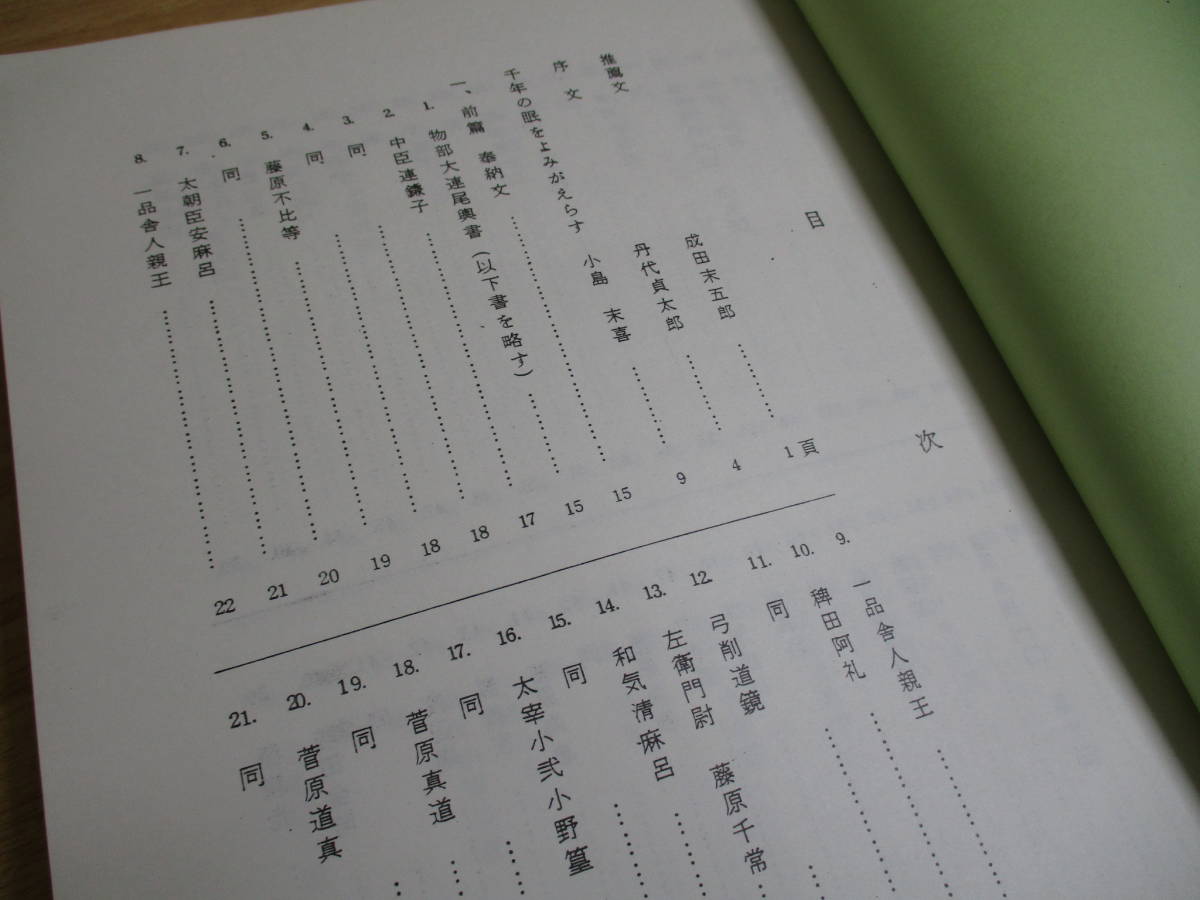 目次
推薦文 成田末五郎 ………… 1頁
序文 丹代貞太郎 ………… 4
千年の眠をよみがえらす 小島末喜 ………… 9
一、前篇 奉納文 ………… 15
1. 物部大連尾輿書(以下書を略す) ………… 15
2. 中臣連鎌子 ………… 17
3. 同 ………… 18
4. 同 ………… 18
5. 藤原不比等 ………… 19
6. 同 ………… 20
7. 太朝臣安麻呂 ………… 21
8. 一品舎人親王 ………… 22
9. 一品舎人親王 …………
10. 稗田阿礼 …………
11. 同 …………
12. 弓削道鏡 …………
13. 左衛門尉 藤原千常 …………
14. 和気清麻呂 …………
15. 同 …………
16. 太宰小弐小野篁
17. 同 …………
18. 菅原真道 …………
19. 同 …………
20. 菅原道真
21. 同